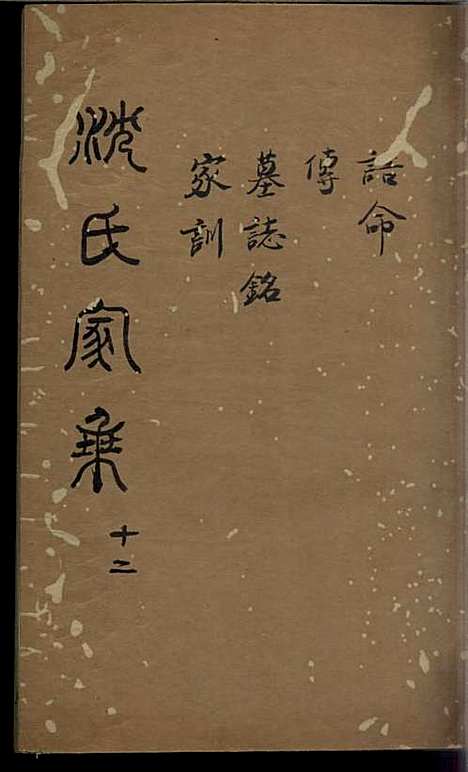 誥命
傳
墓誌銘
家訓
沈氏家乗
十二